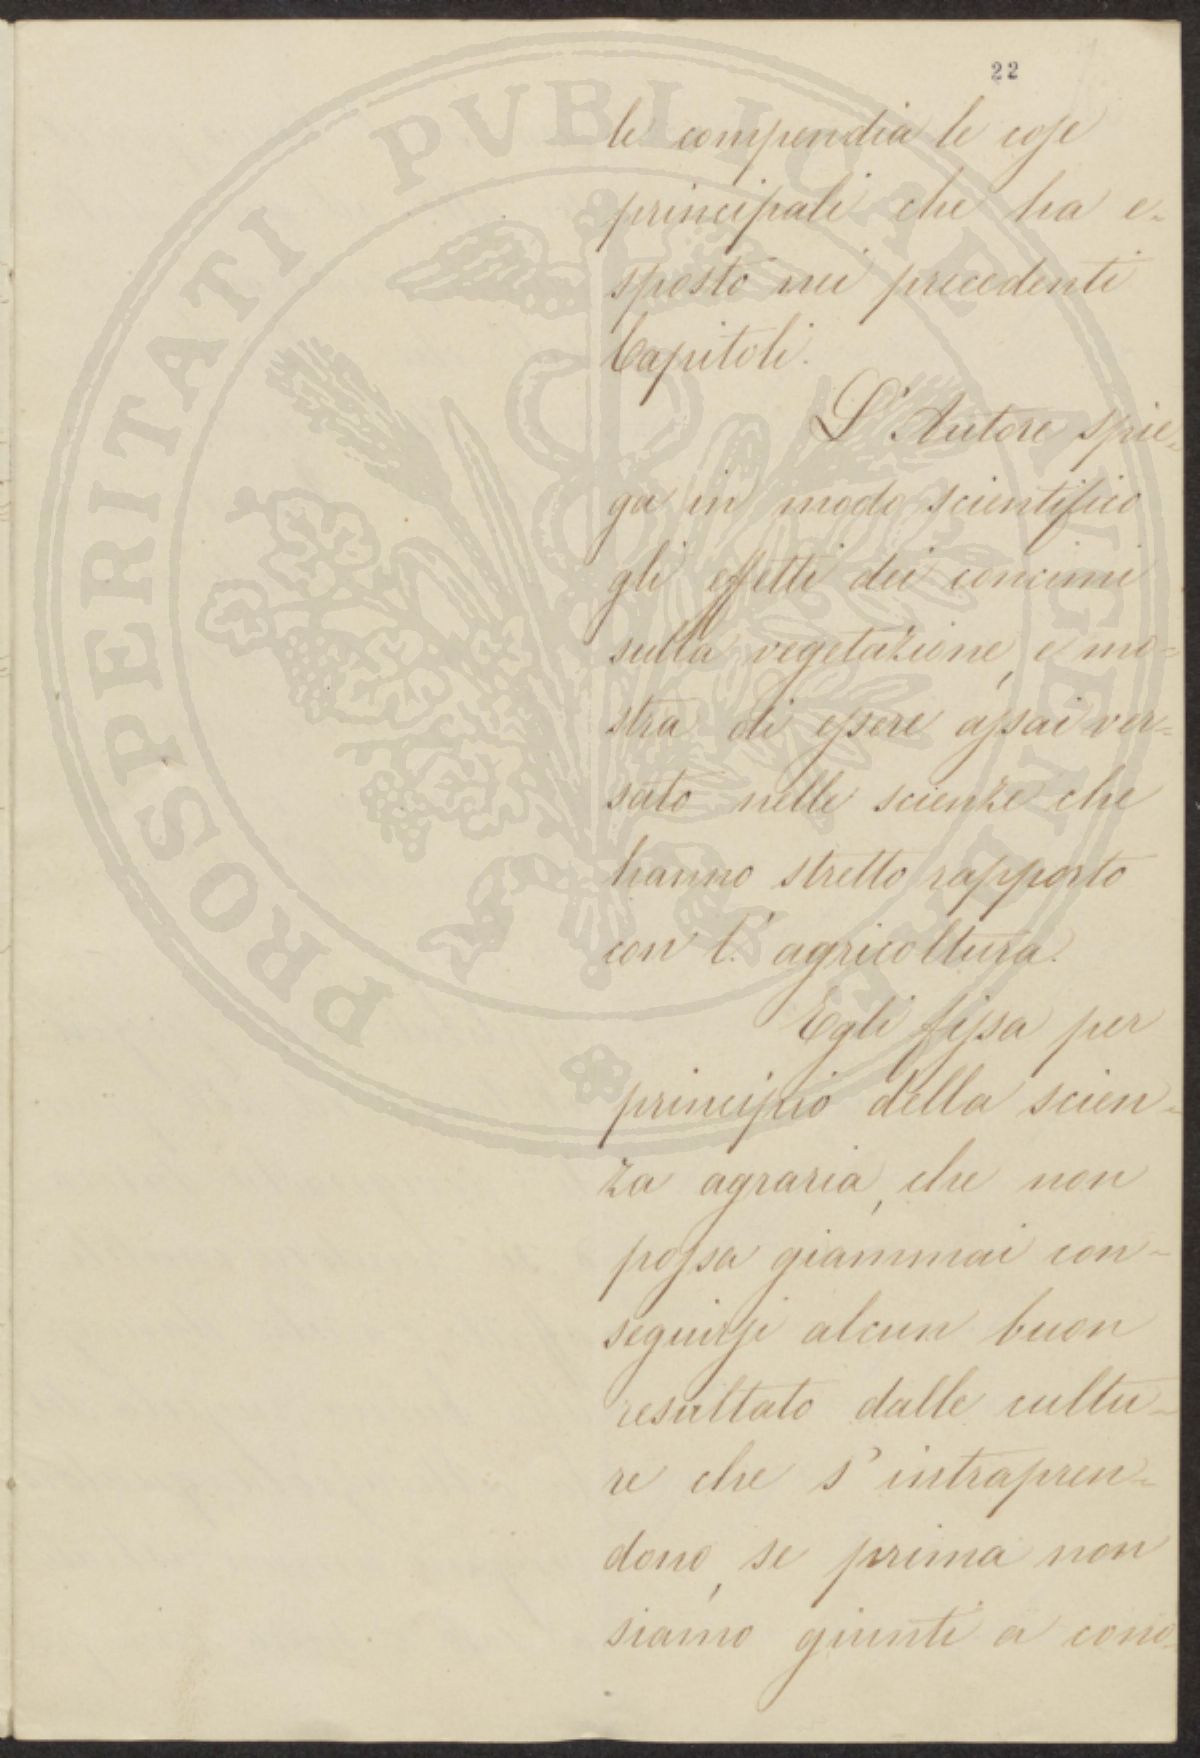 22
le compendia le cose
principali che ha e-
sposto nei precedenti
Capitoli.
L'Autore spie-
ga in modo scientifico
gli effetti dei concimi
sulla vegetazione, e mo-
stra di essere assai ver-
sato nelle scienze che
hanno stretto rapporto
con l'agricoltura.
Egli fissa per
principio della scien-
za agraria, che non
possa giammai con-
seguirsi alcun buon
resultato dalle cultu-
re che s'intrapren-
dono, se prima non
siamo giunti a cono-
PROSPERITATI PVBLICAE AVGENDAE